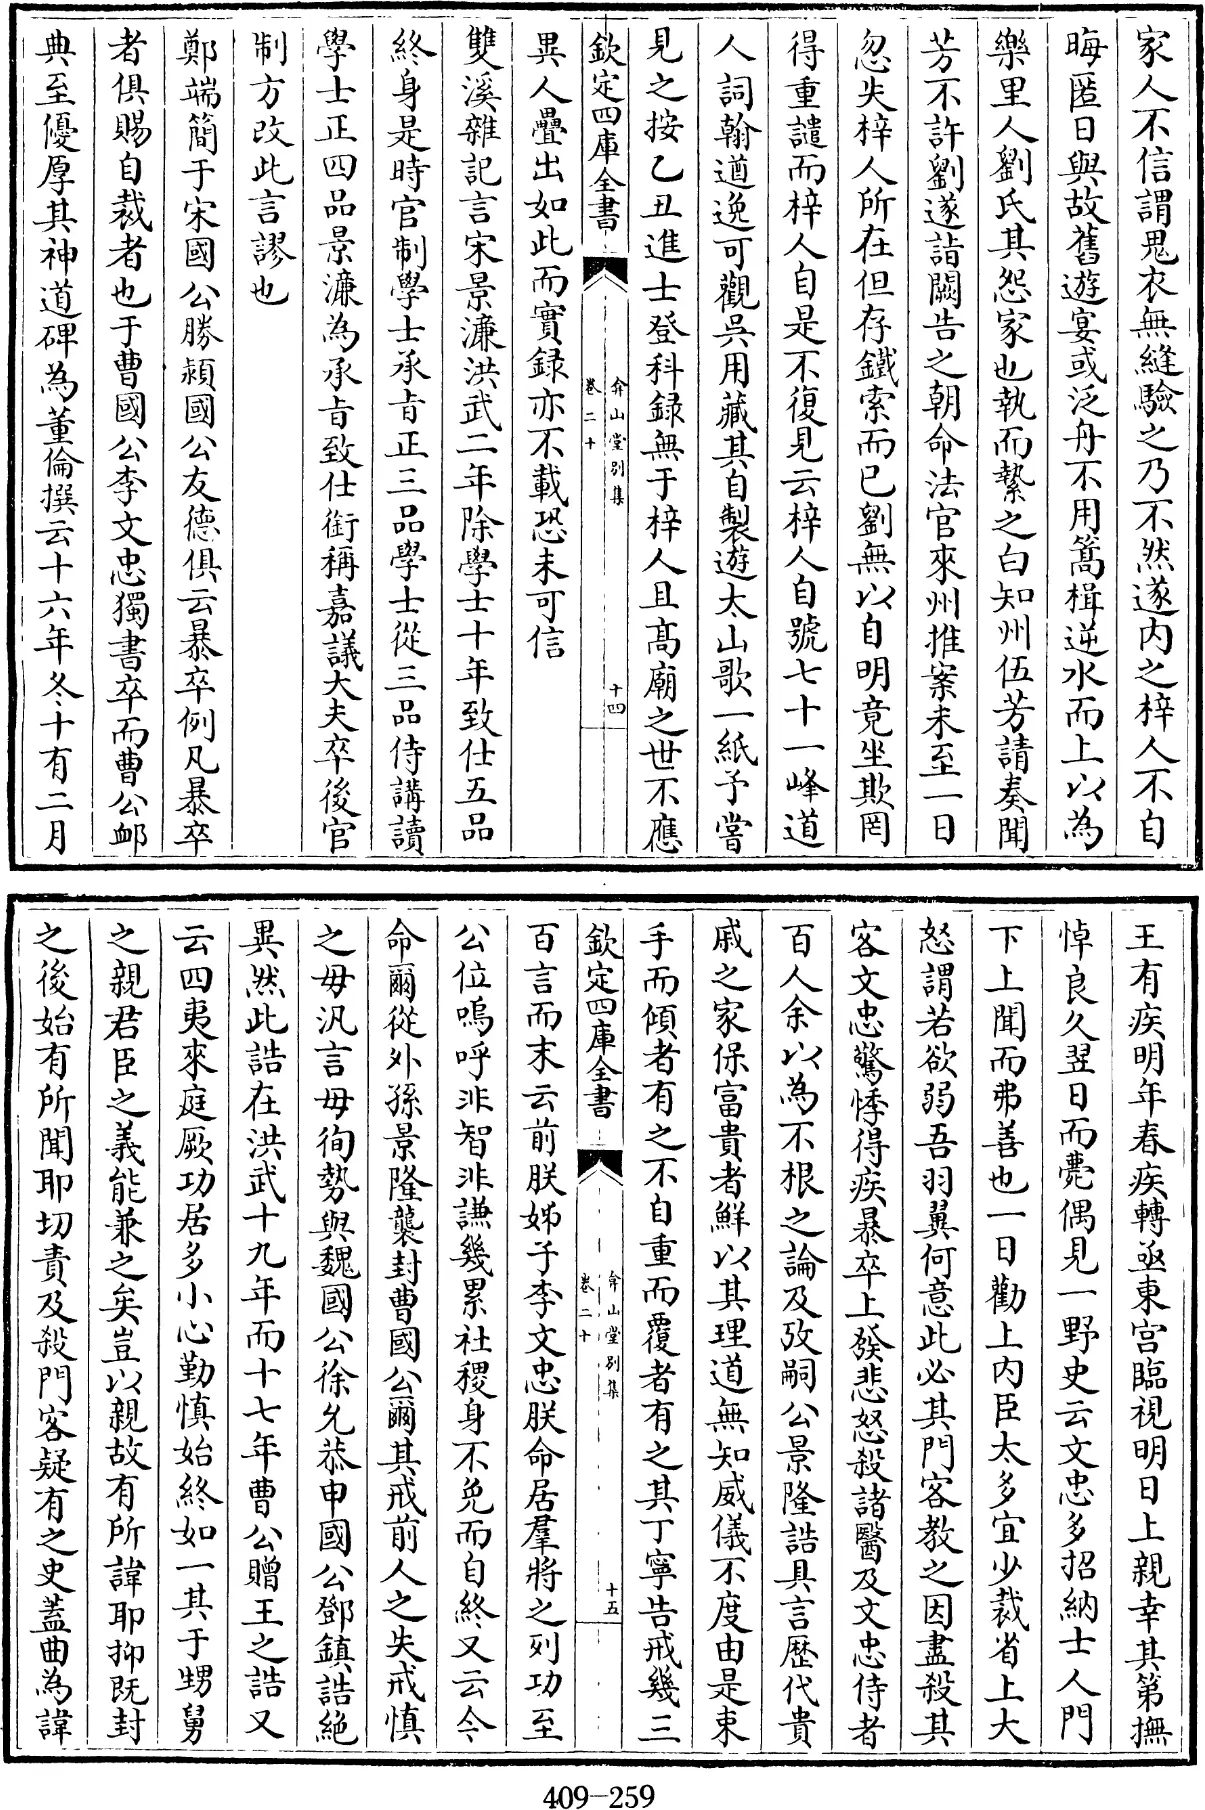 家人不信謂鬼衣無縫驗之乃不然遂内之梓人不自
晦匿日與故舊遊宴或泛舟不用篙楫逆水而上以為
樂里人劉氏其怨家也執而縶之白知州伍芳請奏聞
芳不許劉遂詣闕告之朝命法官來州推案未至一日
忽失梓人所在但存鐵索而已劉無以自明竟坐欺罔
得重譴而梓人自是不復見云梓人自號七十一峰道
人詞翰遒逸可觀吳用藏其自製遊太山歌一紙予嘗
見之按乙丑進士登科録無于梓人且高廟之世不應
欽定四庫全書
弇山堂别集
卷二十
十四
異人疊出如此而實録亦不載恐未可信
雙溪雜記言宋景濂洪武二年除學士十年致仕五品
終身是時官制學士承㫖正三品學士從三品侍講讀
學士正四品景濂為承㫖致仕銜稱嘉議大夫卒後官
制方改此言謬也
鄭端簡于宋國公勝潁國公友德俱云暴卒例凡暴卒
者俱賜自裁者也于曹國公李文忠獨書卒而曹公卹
典至優厚其神道碑為董倫撰云十六年冬十有二月
王有疾明年春疾轉亟東宫臨視明日上親幸其第撫
悼良久翌日而薨偶見一野史云文忠多招納士人門
下上聞而弗善也一日勸上内臣太多宜少裁省上大
怒謂若欲弱吾羽翼何意此必其門客教之因盡殺其
客文忠驚悸得疾暴卒上發悲怒殺諸醫及文忠侍者
百人余以為不根之論及攷嗣公景隆誥具言歴代貴
戚之家保富貴者鮮以其理道無知威儀不度由是束
手而傾者有之不自重而覆者有之其丁寧告戒幾三
欽定四庫全書
弇山堂别集
卷二十
十五
百言而末云前朕姊子李文忠朕命居羣將之列功至
公位嗚呼非智非謙幾累社稷身不免而自終又云今
命爾從外孫景隆襲封曹國公爾其戒前人之失戒慎
之毋汎言毋徇勢與魏國公徐允恭申國公鄧鎮誥絶
異然此誥在洪武十九年而十七年曹公贈王之誥又
云四夷來庭厥功居多小心勤慎始終如一其于甥舅
之親君臣之義能兼之矣豈以親故有所諱耶抑既封
之後始有所聞耶切責及殺門客疑有之史蓋曲為諱
409-259